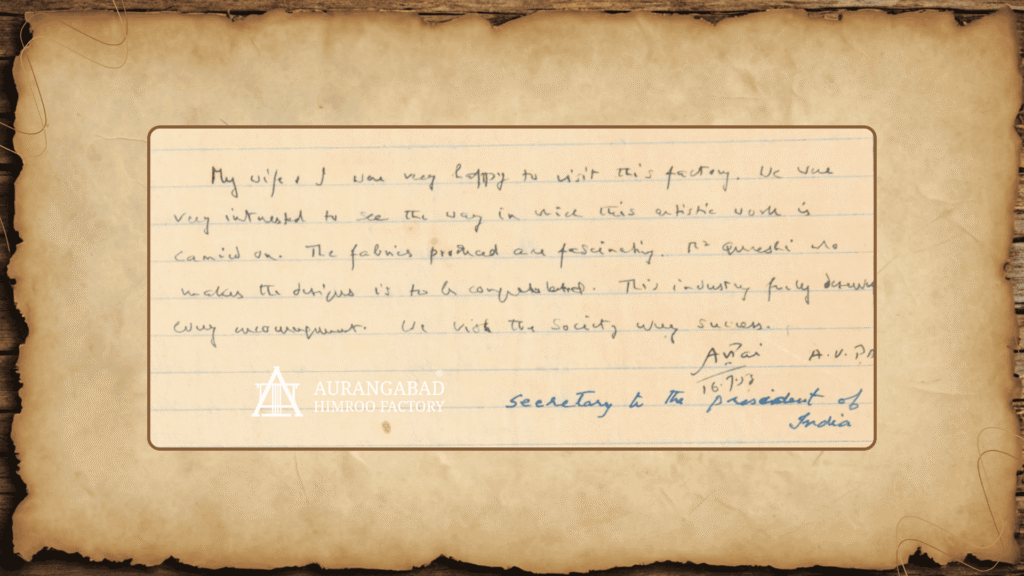 My wife & I were very happy to visit this factory. We were
very interested to see the way in which this artistic work is
carried on. The fabrics produced are fascinating. Mr Qureshi who
makes the designs is to be congratulated. This industry fully deserves
every encouragement. We wish the Society every success.
A.V.
16.7.53
Secretary to the president of
India
AURANGABAD
HIMROO FACTORY